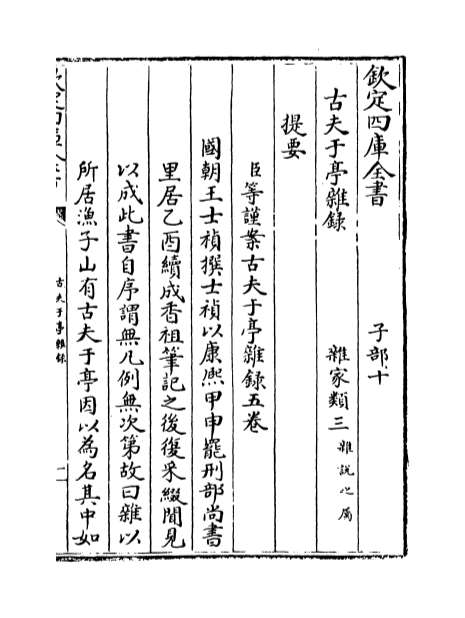 欽定四庫全書 子部十
古夫于亭雜録 雜家類三雜說之屬
提要
臣等謹案古夫于亭雜録五卷
國朝王士禎撰士禎以康熙甲申罷刑部尚書
里居乙酉續成香祖筆記之後復采綴聞見
以成此書自序謂無凡例無次第故曰雜以
所居漁子山有古夫于亭因以為名其中如
古夫于亭雜録